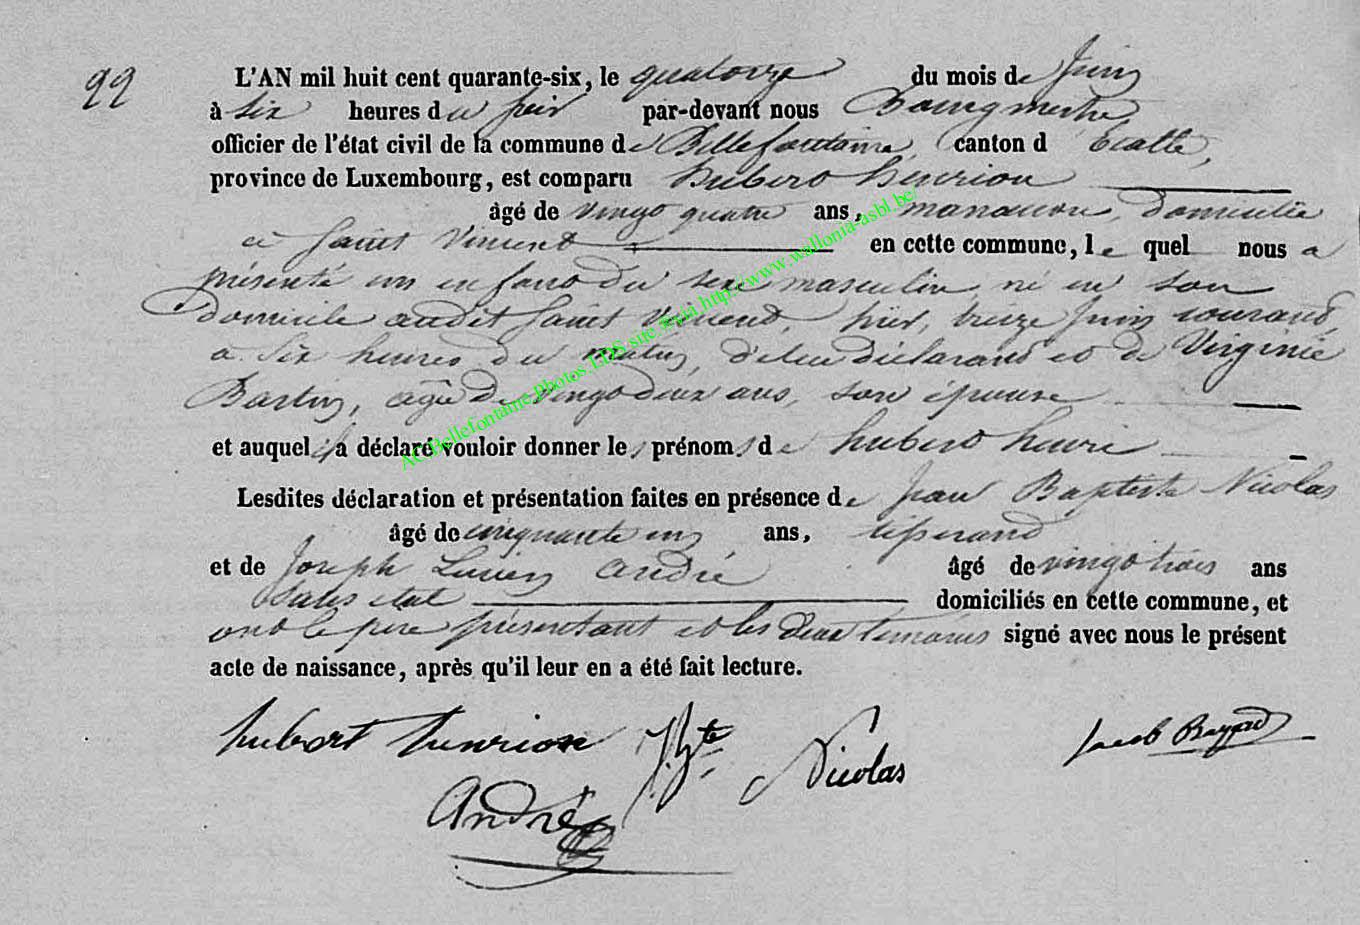 22
L'AN mil huit cent quarante-six, le quatorze du mois de Juin
à six heures du soir par-devant nous Bourgmestre,
officier de l'état civil de la commune de Bellefontaine, canton d' Etalle,
province de Luxembourg, est comparu hubert henrion
âgé de vingt quatre ans, manœuvre, domicilié
à Saint Vincent en cette commune, le quel nous a
présenté un enfant du sexe masculin né en son
domicile audit Saint Vincent, hier treize Juin courant,
à six heures du matin, de lui déclarant et de Virginie
Bastin, agée de vingt deux ans, son épouse
et auquel il a déclaré vouloir donner les prénoms de hubert henri
Lesdites déclaration et présentation faites en présence de Jean Baptiste Nicolas
âgé de cinquante un ans, tisserand
et de Joseph Lucien andré âgé de vingt trois ans
sans état domiciliés en cette commune, et
ont le père présentant et les deux témoins signé avec nous le présent
acte de naissance, après qu'il leur en a été fait lecture.
hubert henrion J. Bte Nicolas Jacob
André
AC Bellefontaine Photos LDS site via http://www.wallonia-asbl.be/